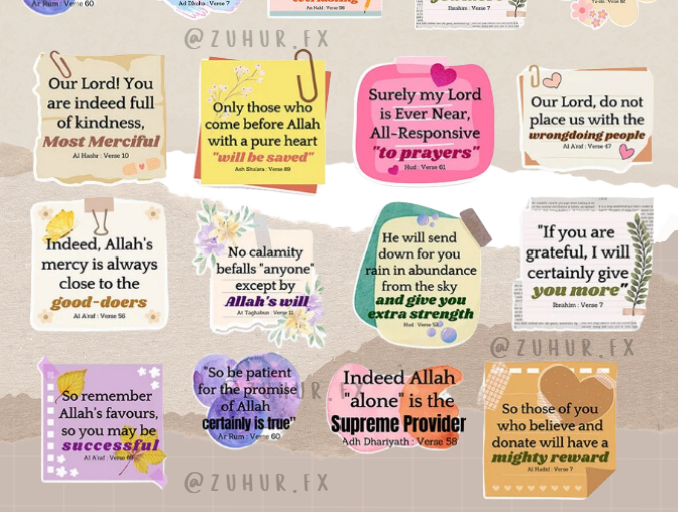 Ar Rum : Verse 60
Ad Dhuha : Verse 7
An Nahl : Verse 98
Ibrahim : Verse 7
@ZUHUR.FX
Our Lord! You
are indeed full
of kindness,
Most Merciful
Al Hashr : Verse 10
Only those who
come before Allah
with a pure heart
"will be saved"
Ash Shu'ara : Verse 89
Surely my Lord
is Ever Near,
All-Responsive
"to prayers"
Hud : Verse 61
Our Lord, do not
place us with the
wrongdoing people
Al A'raf : Verse 47
Indeed, Allah's
mercy is always
close to the
good-doers
Al A'raf : Verse 56
No calamity
befalls "anyone"
except by
Allah's will
At Taghabun : Verse 11
He will send
down for you
rain in abundance
from the sky
and give you
extra strength
Hud : Verse 52
"If you are
grateful, I will
certainly give
you more"
Ibrahim : Verse 7
@ZUHUR.FX
So remember
Allah's favours,
so you may be
successful
Al A'raf : Verse 69
"So be patient
for the promise
of Allah
certainly is true"
Ar Rum : Verse 60
Indeed Allah
"alone" is the
Supreme Provider
Adh Dhariyath : Verse 58
So those of you
who believe and
donate will have a
mighty reward
Al Hadid : Verse 7
@ZUHUR.FX